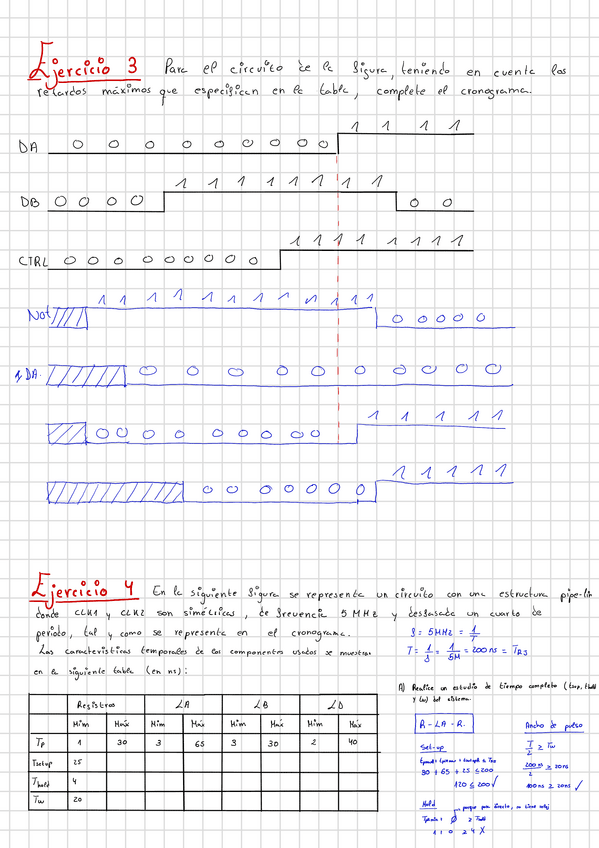 Ejercicio 3 Para el circuito de la figura, teniendo en cuenta los
retardos máximos que especifican en la tabla, complete el cronograma.
1 1 1 1
DA 0 0 0 0 0 0 0 0 0 0
1 1 1 1 1 1 1 1 1
DB 0 0 0 0 0 0
1 1 1 1 1 1 1 1
CTRL 0 0 0 0 0 0 0 0 0
Not 1 1 1 1 1 1 1 1 1 1 1 1 1
0 0 0 0 0
DA. 0 0 0 0 0 0 0 0 0
1 1 1 1 1
0 0 0 0 0 0 0 0 0
1 1 1 1 1
0 0 0 0 0 0 0
Ejercicio 4 En la siguiente figura se representa un circuito con una estructura pipe-lin
donde CLK1 y CLK2 son simétricas, de frecuencia 5 MHz y desfasada un cuarto de
periodo, tal y como se representa en el cronograma.
Las características temporales de los componentes usados se muestran
en la siguiente tabla (en ns):
f = 5MHz = 1/T
T = 1/f = 1/5M = 200 ns =
Registros LA LB LD
Mim Máx Mim Máx Mim Máx Mim Máx
Tp 1 30 3 65 3 30 2 40
Tsetup 25
Thold 4
Tw 20
A) Realice un estudio de tiempo completo (tsup, thold
y tw) del sistema.
R - LA - R.
Set-up
30 + 65 + 25 ≤ 200
120 ≤ 200 ✓
Hold
porque
≥ Thold
1 + 0 ≥ 4 X
Ancho de pulso
T/2 ≥ Tw
200 ns/2 ≥ 20ns
100 ns ≥ 20ns ✓